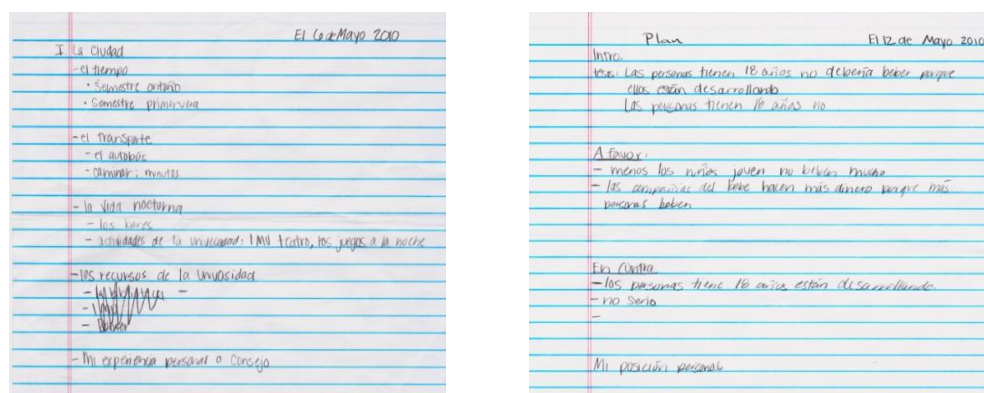 El 6 de Mayo 2010
I. La Ciudad
- el tiempo
• Semestre otoño
• Semestre primervera
- el transporte
- el autobús
- caminar: minutos
- la vida nocturna
- los bares
- actividades de la universidad: IMU teatro, los juegos a la noche
- los recursos de la univosidad
-
-
-
- Mi experiencia personal o consejo
Plan El 12 de Mayo 2010
Intro.
tesis: Las personas tienen 18 años no debería beber porque
ellos están desarrollando
Las personas tienen 18 años no
A favor:
- menos los niños joven no beben mucho
- las compañías del bebe hacen más dinero porque más
personas beben
En contra
- los personas tiene 18 años están desarrollando
- no serio
-
Mi posición personal